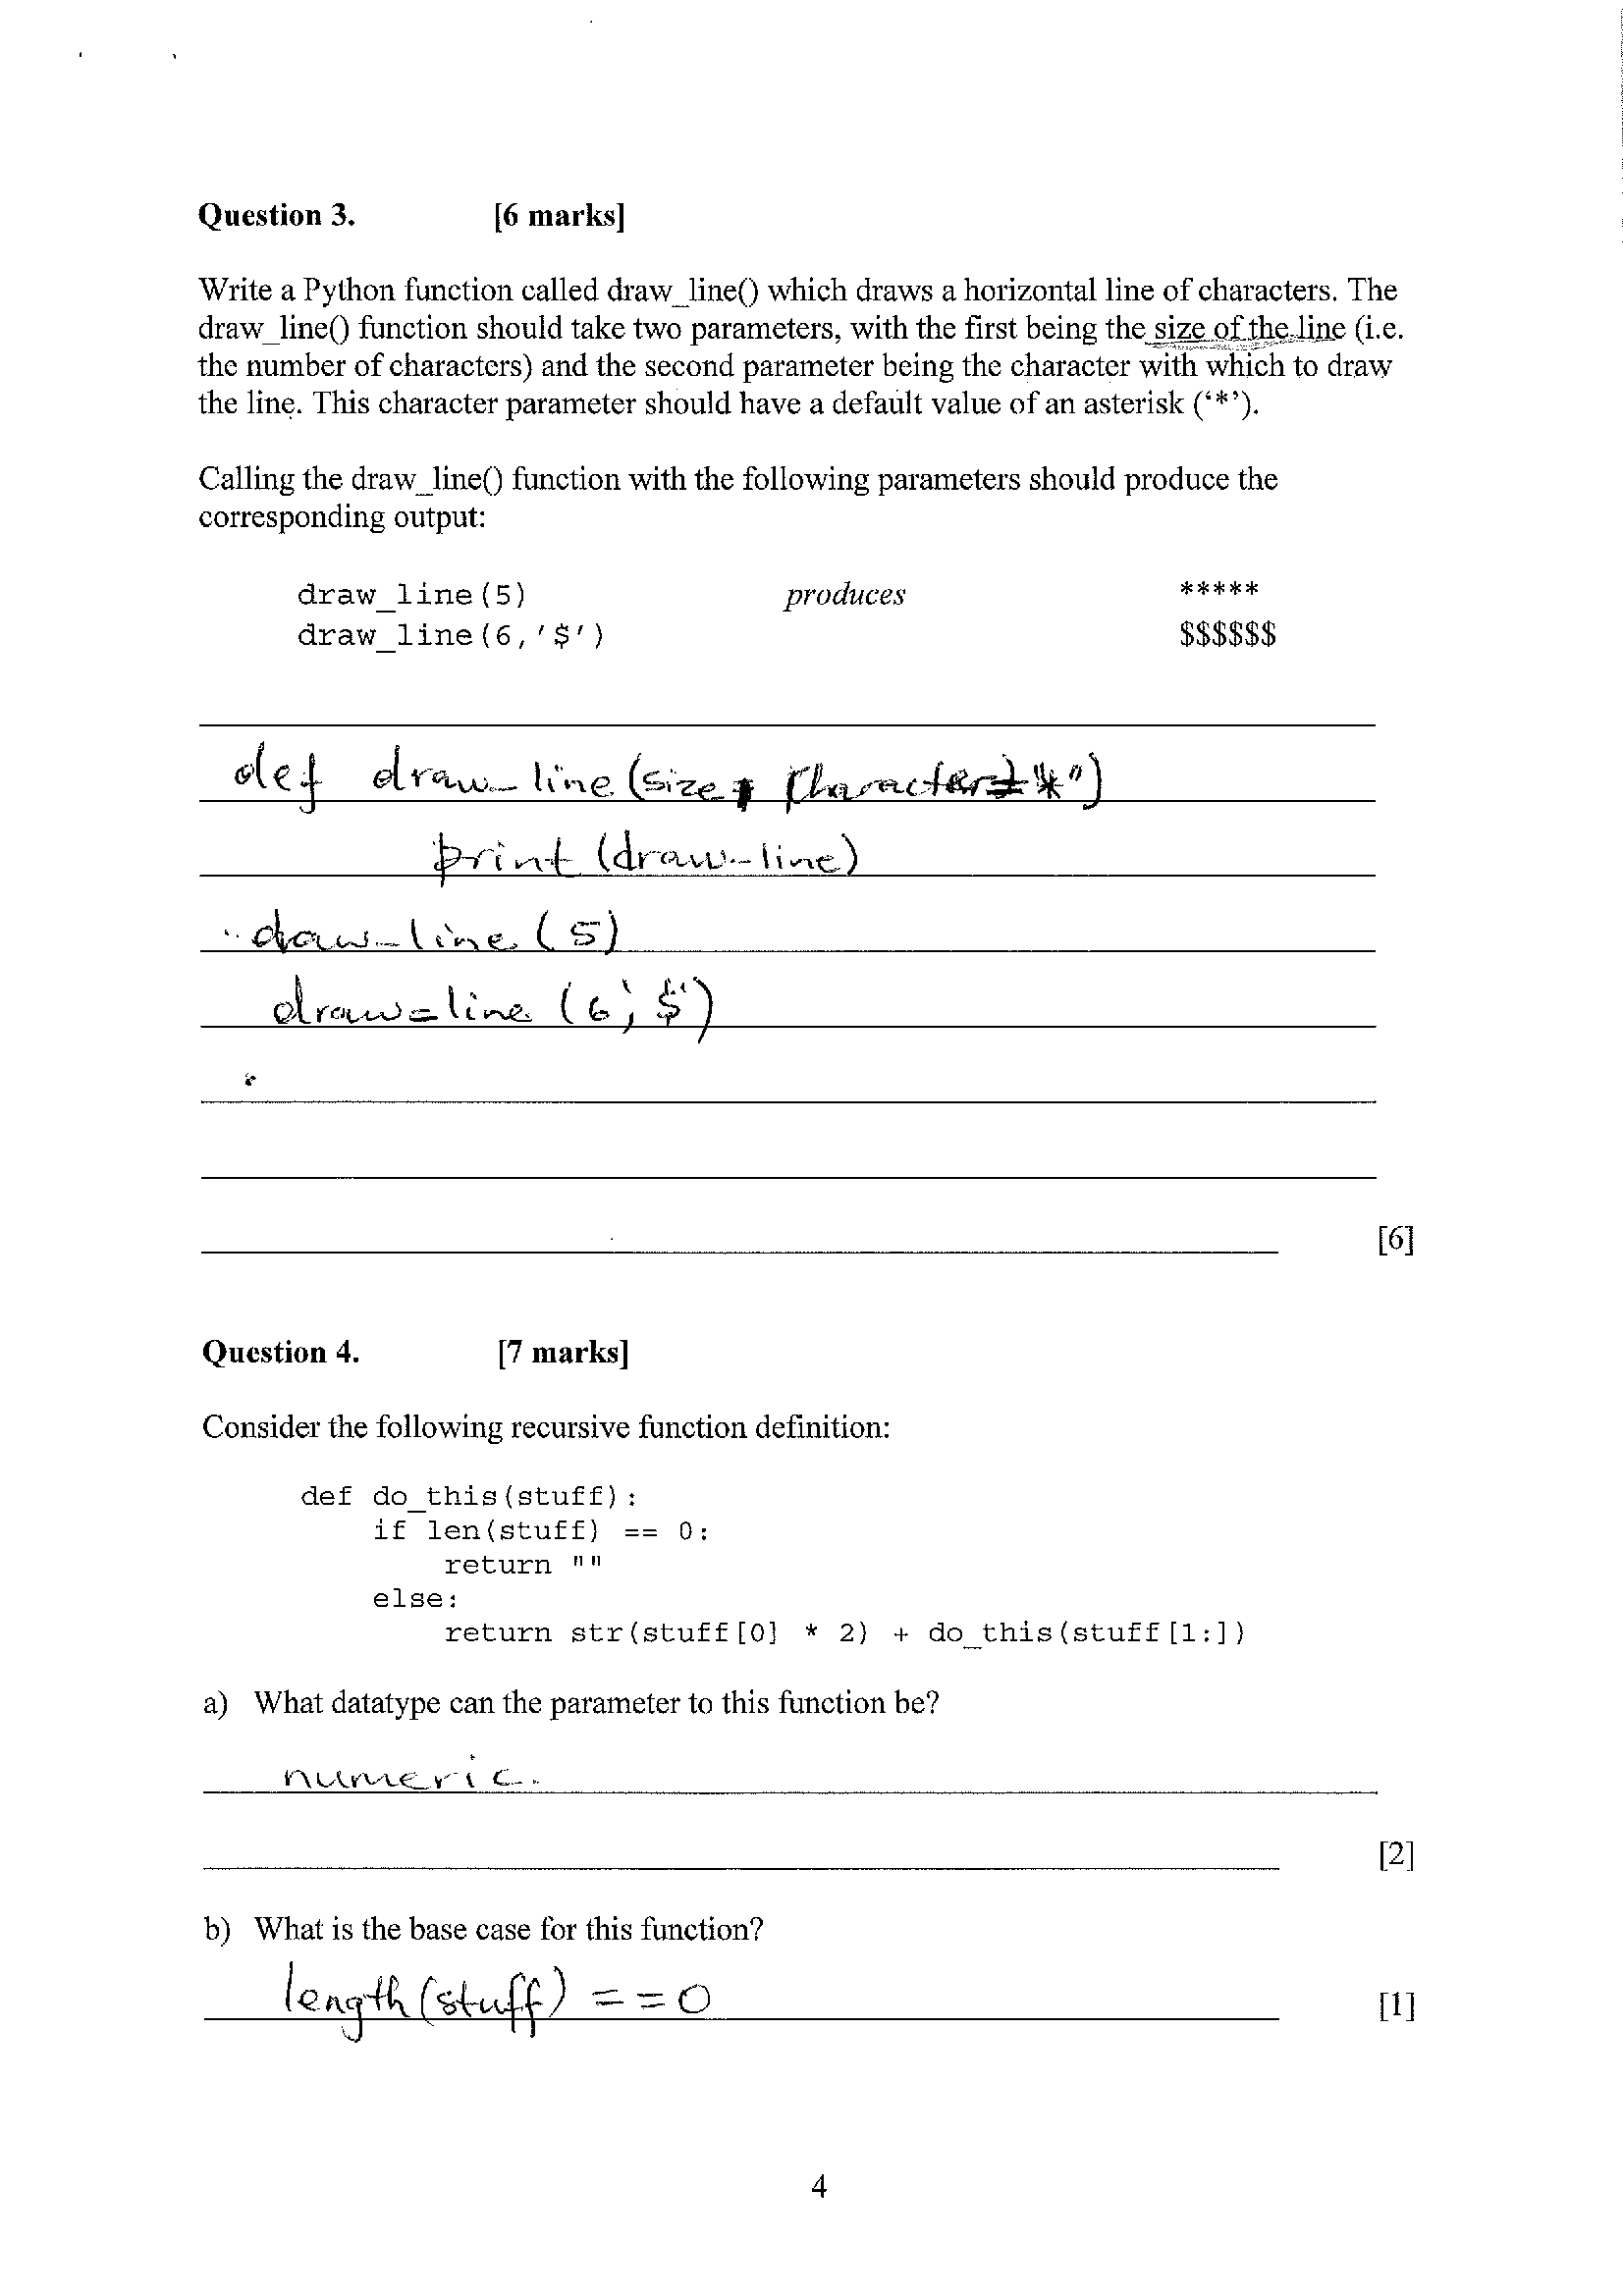 Question 3. [6 marks]
Write a Python function called draw_line() which draws a horizontal line of characters. The
draw_line() function should take two parameters, with the first being the size of the line (i.e.
the number of characters) and the second parameter being the character with which to draw
the line. This character parameter should have a default value of an asterisk (‘*’).
Calling the draw_line() function with the following parameters should produce the
corresponding output:
draw_line(5) produces *****
draw_line(6,'$') $$$$$$
def draw_line (size, character="*")
print (draw_line)
draw_line (5)
draw_line (6, '$')
[6]
Question 4. [7 marks]
Consider the following recursive function definition:
def do_this(stuff):
if len(stuff) == 0:
return ""
else:
return str(stuff[0] * 2) + do_this(stuff[1:])
a) What datatype can the parameter to this function be?
numeric.
[2]
b) What is the base case for this function?
length(stuff) == 0 [1]
4